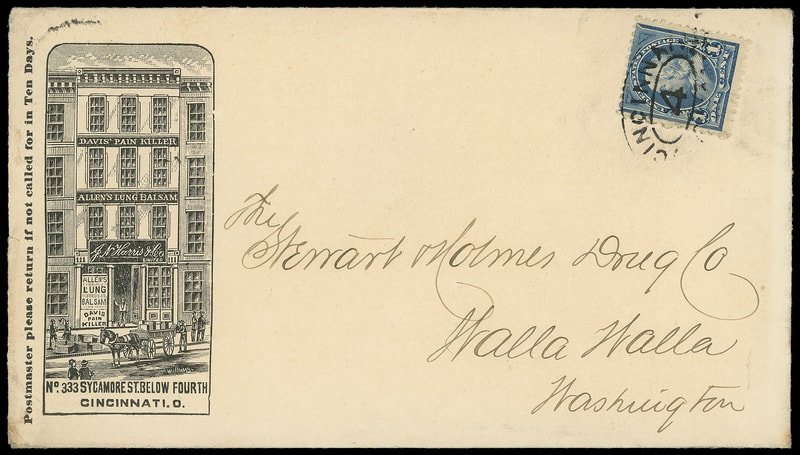 Postmaster please return if not called for in Ten Days.
DAVIS' PAIN KILLER
ALLEN'S LUNG BALSAM
J. N. Harris & Co
LIMITED
ALLEN'S
LUNG
BALSAM
DAVIS
PAIN
KILLER
No. 333 SYCAMORE ST. BELOW FOURTH
CINCINNATI. O.
CINCINNATI
4
The
Stewart & Holmes Drug Co
Walla Walla
Washington